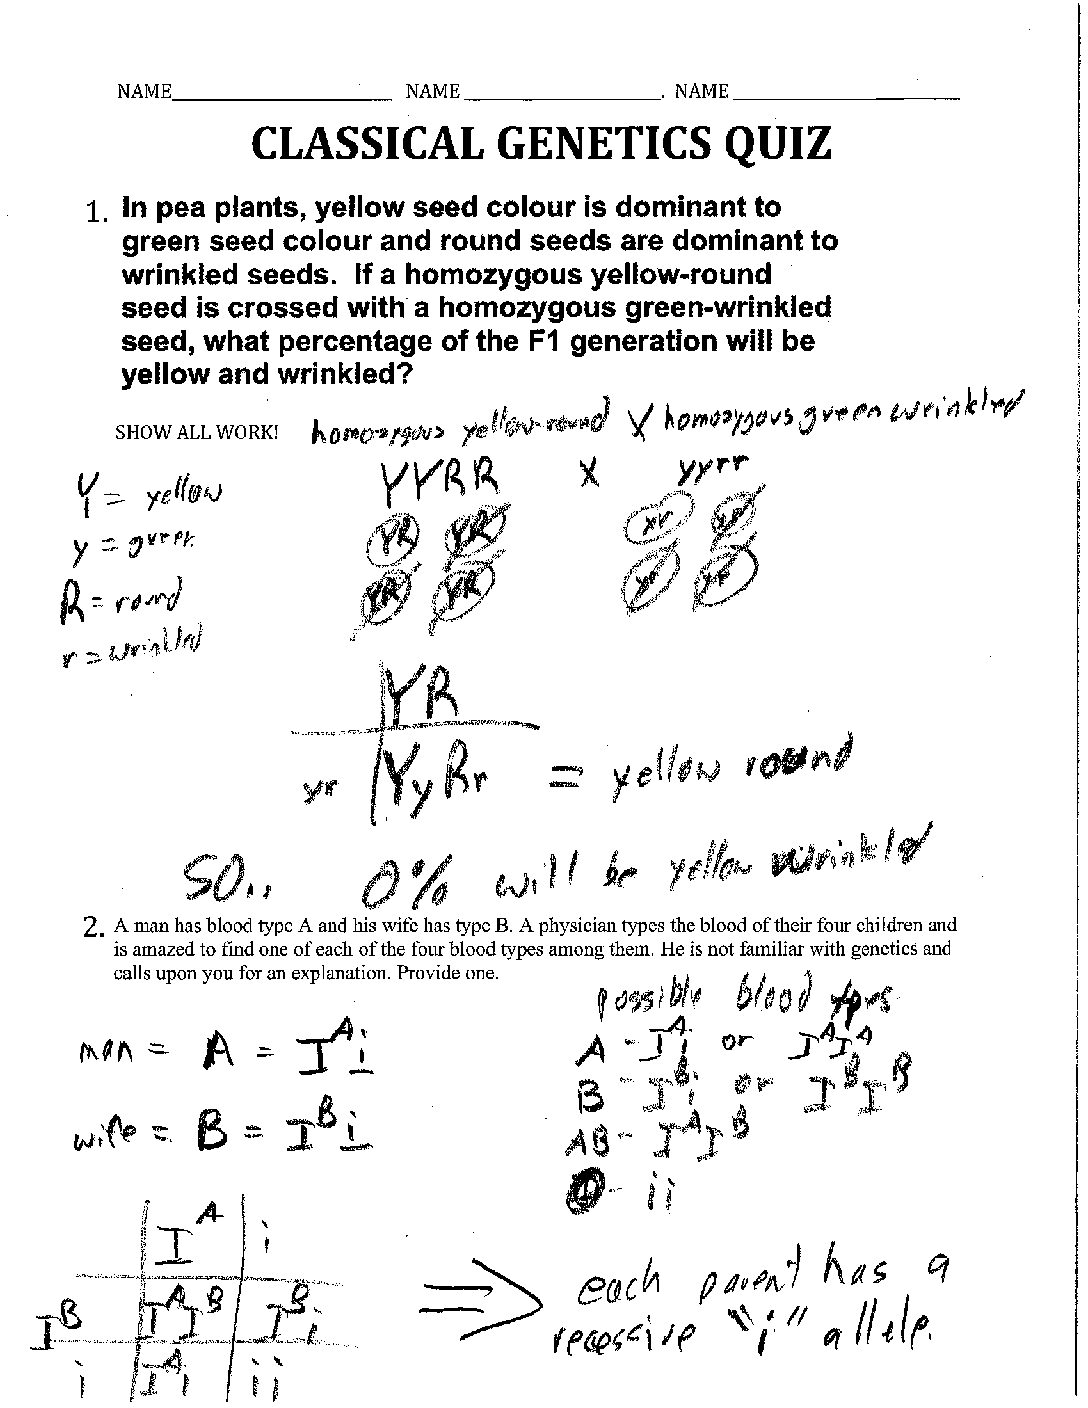 NAME NAME NAME
CLASSICAL GENETICS QUIZ
1. In pea plants, yellow seed colour is dominant to
green seed colour and round seeds are dominant to
wrinkled seeds. If a homozygous yellow-round
seed is crossed with a homozygous green-wrinkled
seed, what percentage of the F1 generation will be
yellow and wrinkled?
SHOW ALL WORK! homozygous yellow-round X homozygous green wrinkled
Y = yellow
YYRR X yyrr
y = green
YR YR yr yr
R = round
YR YR yr yr
r = wrinkled
YR
yr YyRr = yellow round
SO.. 0% will be yellow wrinkled
2. A man has blood type A and his wife has type B. A physician types the blood of their four children and
is amazed to find one of each of the four blood types among them. He is not familiar with genetics and
calls upon you for an explanation. Provide one.
possible blood types
man = A = I^A i
A - I^A i or I^A I^A
B - I^B i or I^B I^B
wife = B = I^B i
AB - I^A I^B
O - ii
I^A i
I^B I^A I^B I^B i
i I^A i ii
each parent has a
recessive "i" allele.